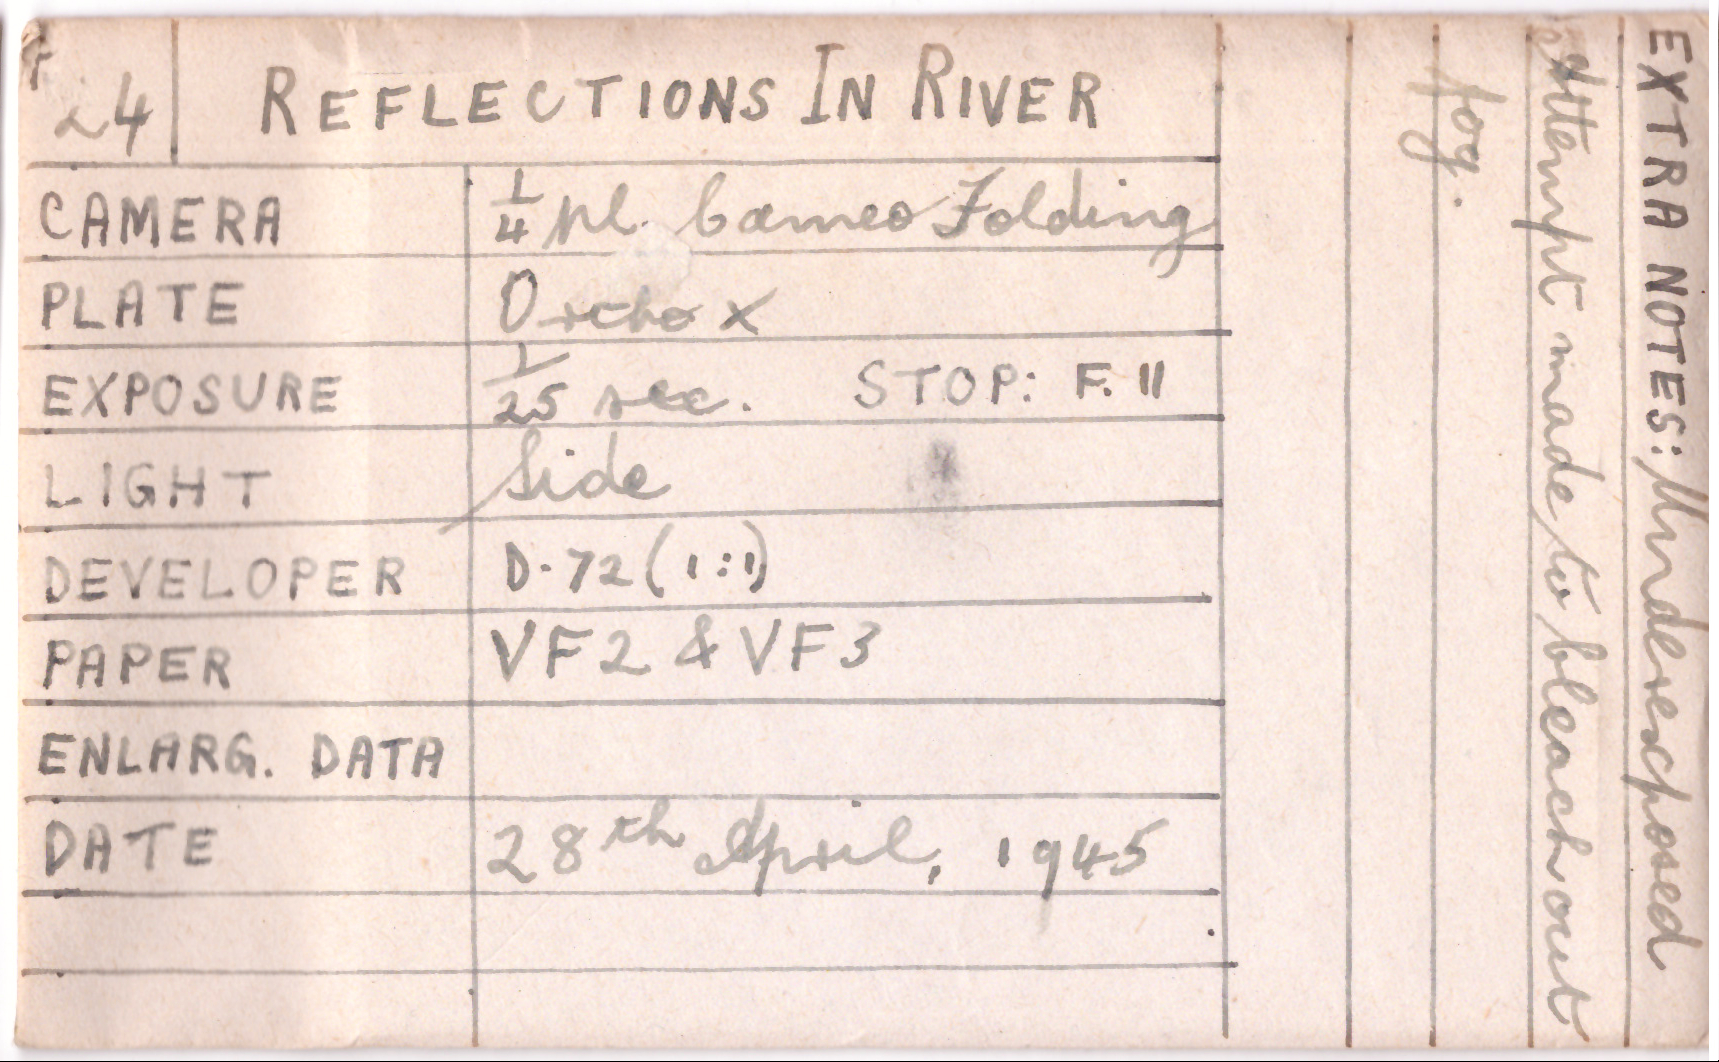 24 REFLECTIONS IN RIVER
CAMERA 1/4 pl. Cameo Folding
PLATE Ortho X
EXPOSURE 1/25 sec. STOP: F.11
LIGHT Side
DEVELOPER D.72 (1:1)
PAPER VF2 & VF3
ENLARG. DATA
DATE 28th April, 1945
EXTRA NOTES: Underexposed
Attempt made to bleach out
fog.